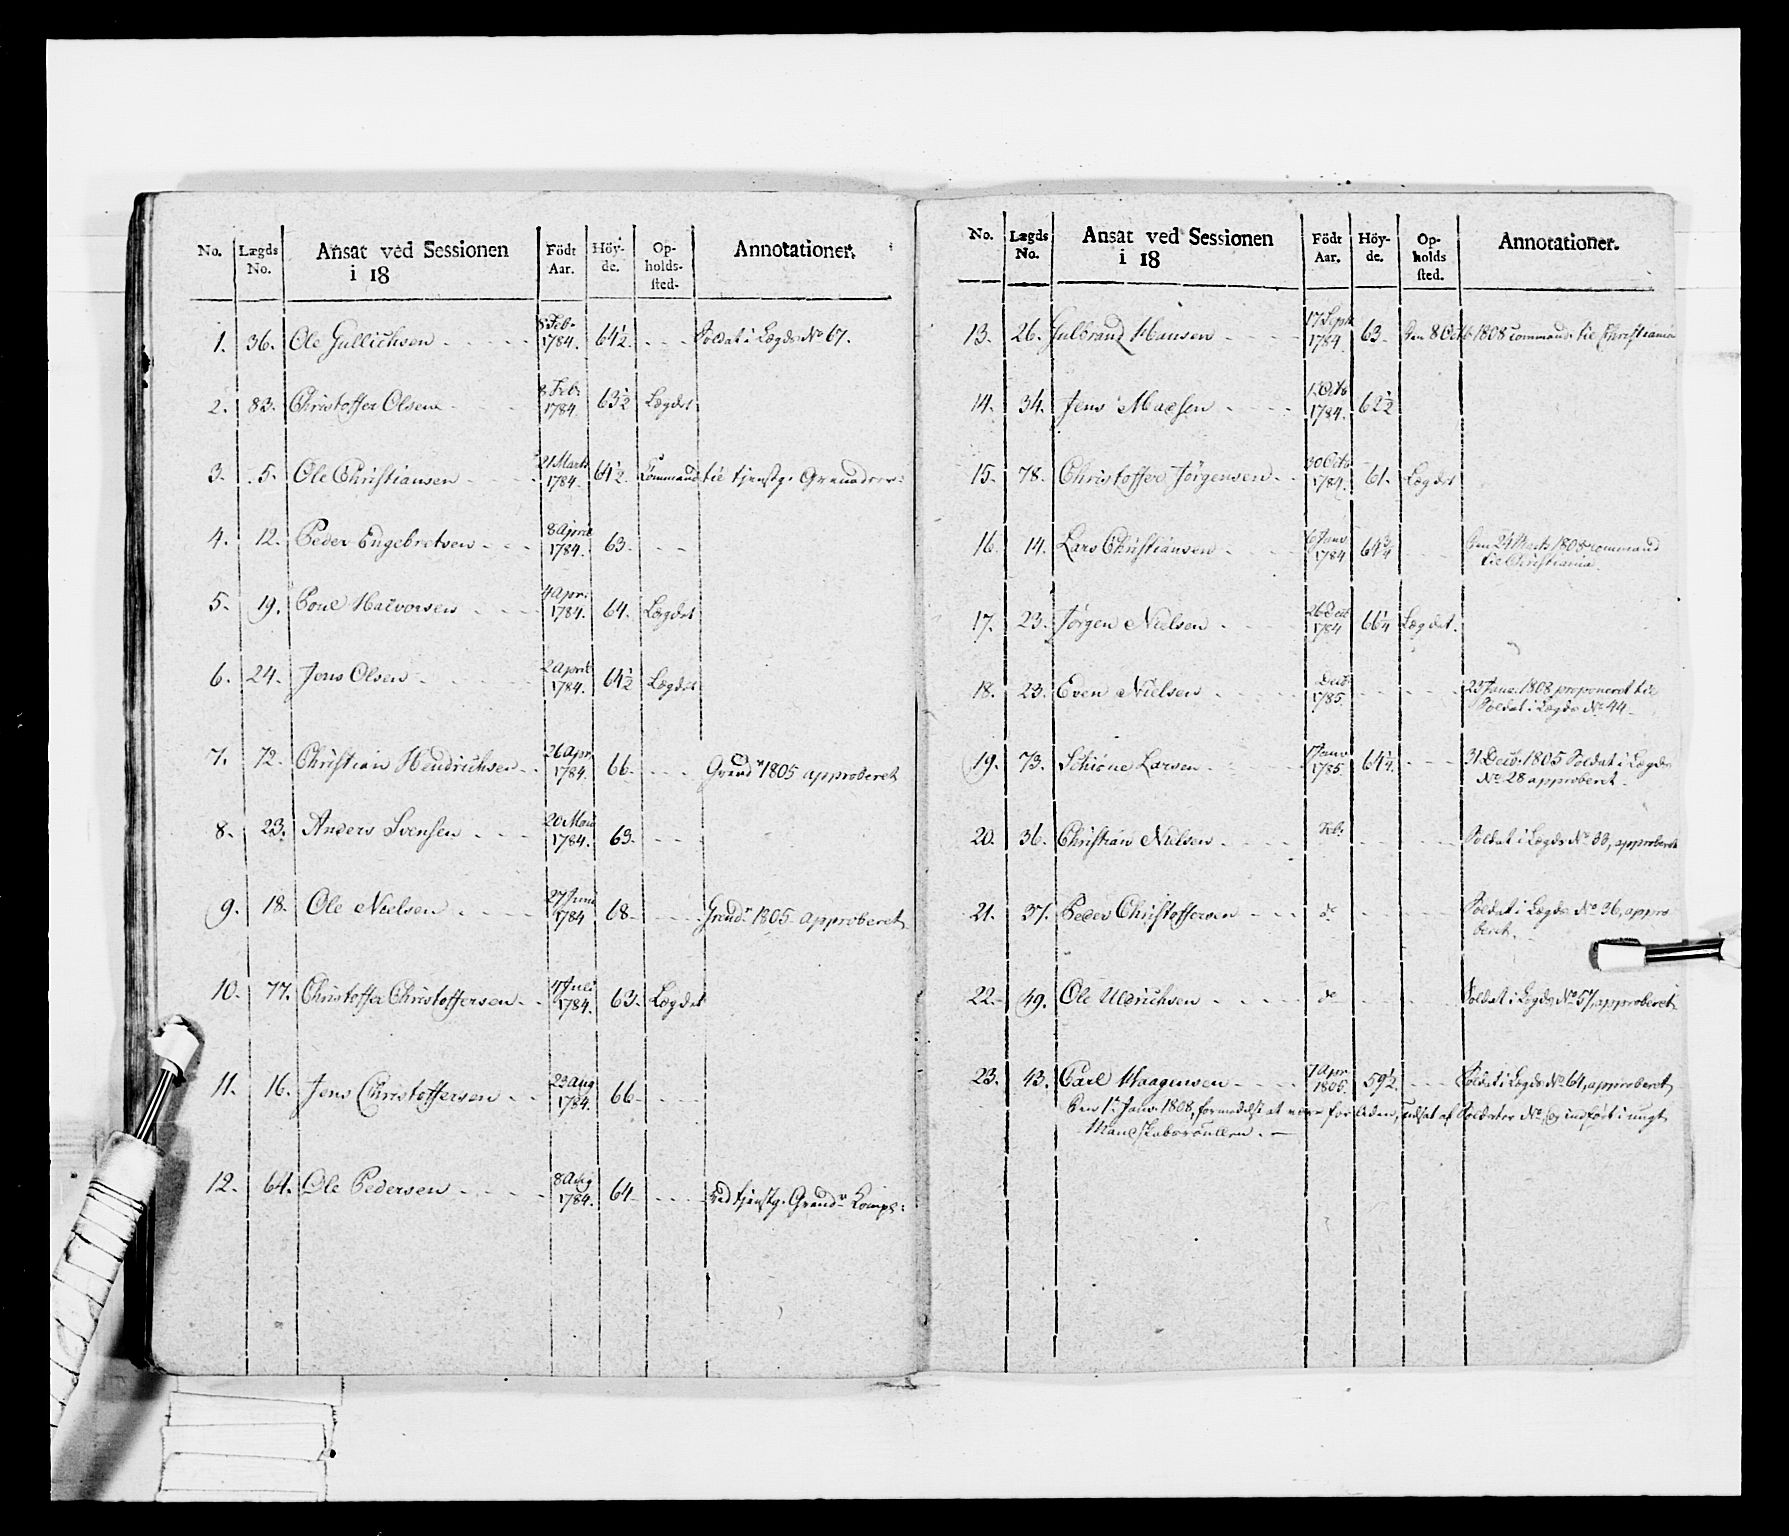 No. Lægds No. Ansat ved Sessionen i 18 Födt Aar. Höy-de. Op-holds-sted. Annotationer.
1. 36. Ole Gullichsen 8 Feb. 1784. 64½ Soldat i Lægds No 67.
2. 83. Christoffer Olsen 8 Feb. 1784. 63½ Lægdet
3. 5. Ole Christiansen 21 Marts 1784. 64½ Command til tjenstg. Grenaderer
4. 12. Peder Engebretsen 8 April 1784. 63
5. 19. Poul Halvorsen 4 Apr. 1784. 64. Lægdet
6. 24. Jens Olsen 2 April 1784. 64½ Lægdet
7. 72. Christian Hendrichsen 26 Apr. 1784. 66 Grendr 1805 approberet
8. 23. Anders Svensen 20 Maii 1784. 63.
9. 18. Ole Nielsen 27 Juni 1784 68 Grendr 1805 approberet
10. 77. Christoffer Christoffersen 4 Juli 1784. 63. Lægdet
11. 16. Jens Christoffersen 23 Aug 1784. 66
12. 64. Ole Pedersen 8 Aug 1784. 64 ved tjenstg. Grendr Komps:
No. Lægds No. Ansat ved Sessionen i 18 Födt Aar. Höy-de. Op-holds sted. Annotationer.
13. 26. Gulbrand Hansen 17 Sept. 1784. 63 Den 8 Octb 1808 command. til Christiania
14. 34. Jens Madsen 1. Octb 1784. 62½
15. 78. Christoffer Jørgensen 30 Octb 1784. 61. Lægdet
16. 14. Lars Christiansen 6 Janv 1784 64¾ Den 24 Marts 1808 command
til Christiania.
17. 23. Jørgen Nielsen 26 Dec 1784 66¼ Lægdet.
18. 23. Even Nielsen Decb 1785. 25 Janv. 1808 proponeret til
Soldat i Lægds No 44
19. 73. Schiöne Larsen 1 Janv 1785. 64½. 31 Decb. 1805 Soldat i Lægds
No 28 approberet
20. 36. Christian Nielsen Feb. Soldat i Lægds No 33, approberet
21. 37. Peder Christoffersen do Soldat i Lægds No 36, appro
beret.
22. 49. Ole Uldrichsen do Soldat i Lægds No 57, approberet
23. 43. Carl Haagensen 7 Apr 59½ Soldat i Lægds No 64, approberet,
Den 1. Janv. 1808, formedelst at være for liden, udsat af Soldater No og indført i ungt
Mandskabsroullen.